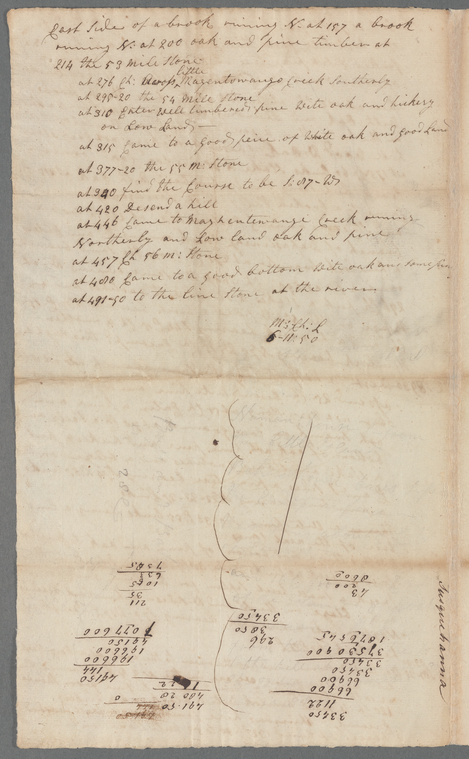 East Side of a brook runing N. at 197 a brook
runing N. at 200 oak and pine timber at
214 the 53 mile Stone
at 276 Ch: Cross little Creek Southerly
at 295-20 the 54 Mile Stone
at 310 Enter well timbered pine wite oak and hickery
on Low Land
at 315 Came to a good peice of White oak and good Land
at 377-20 the 55 M: Stone
at 390 find the Course to be S: 87-W
at 420 Desend a hill
at 446 Came to Creek runing
Northerly and Low land oak and pine
at 457 Ch 56 M: Stone
at 480 Came to a good bottom wite oak and some
at 491-50 to the line Stone at the river
M: Ch: L
6-11-50
Susquehanna
33450
1122
66900
66900
33450
33450
296
3850
33450
43
200
8600
491.50
400 20
1 22
49150
144
196600
196600
49150
211
35
1055
633
7385